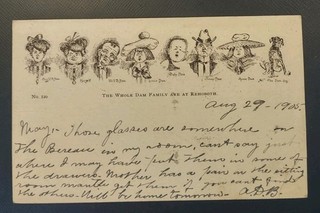 No. 130
THE WHOLE DAM FAMILY ARE AT REHOBOTH.
Aug 29 - 1905.
May - Those glasses are somewhere on
the Bureau in my room, can't say just
where I may have put them in some of
the drawers. Mother has a pair on the sitting
room mantle get them if you cant find
the others. Will be home tomorrow. A.D.B.